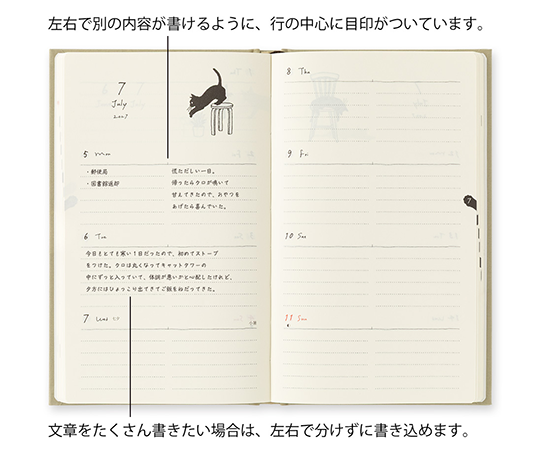 左右で別の内容が書けるように、行の中心に目印がついています。
7
July
2021
5 Mon
・郵便局
・図書館返却
慌ただしい一日。
帰ったらクロが鳴いて
甘えてきたので、おやつを
あげたら喜んでいた。
6 Tue
今日もとても寒い1日だったので、初めてストーブ
をつけた。クロは丸くなってキャットタワーの
中にずっと入っていて、体調が悪いかと心配したけれど、
夕方にはひょっこり出てきてご飯をねだってきた。
7 Wed 七夕
8 Thu
9 Fri
7
10 Sat
11 Sun
文章をたくさん書きたい場合は、左右で分けずに書き込めます。